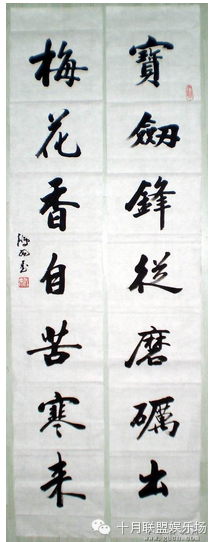 寶劔鋒從磨礪出
梅花香自苦寒來
十月联盟娱乐场